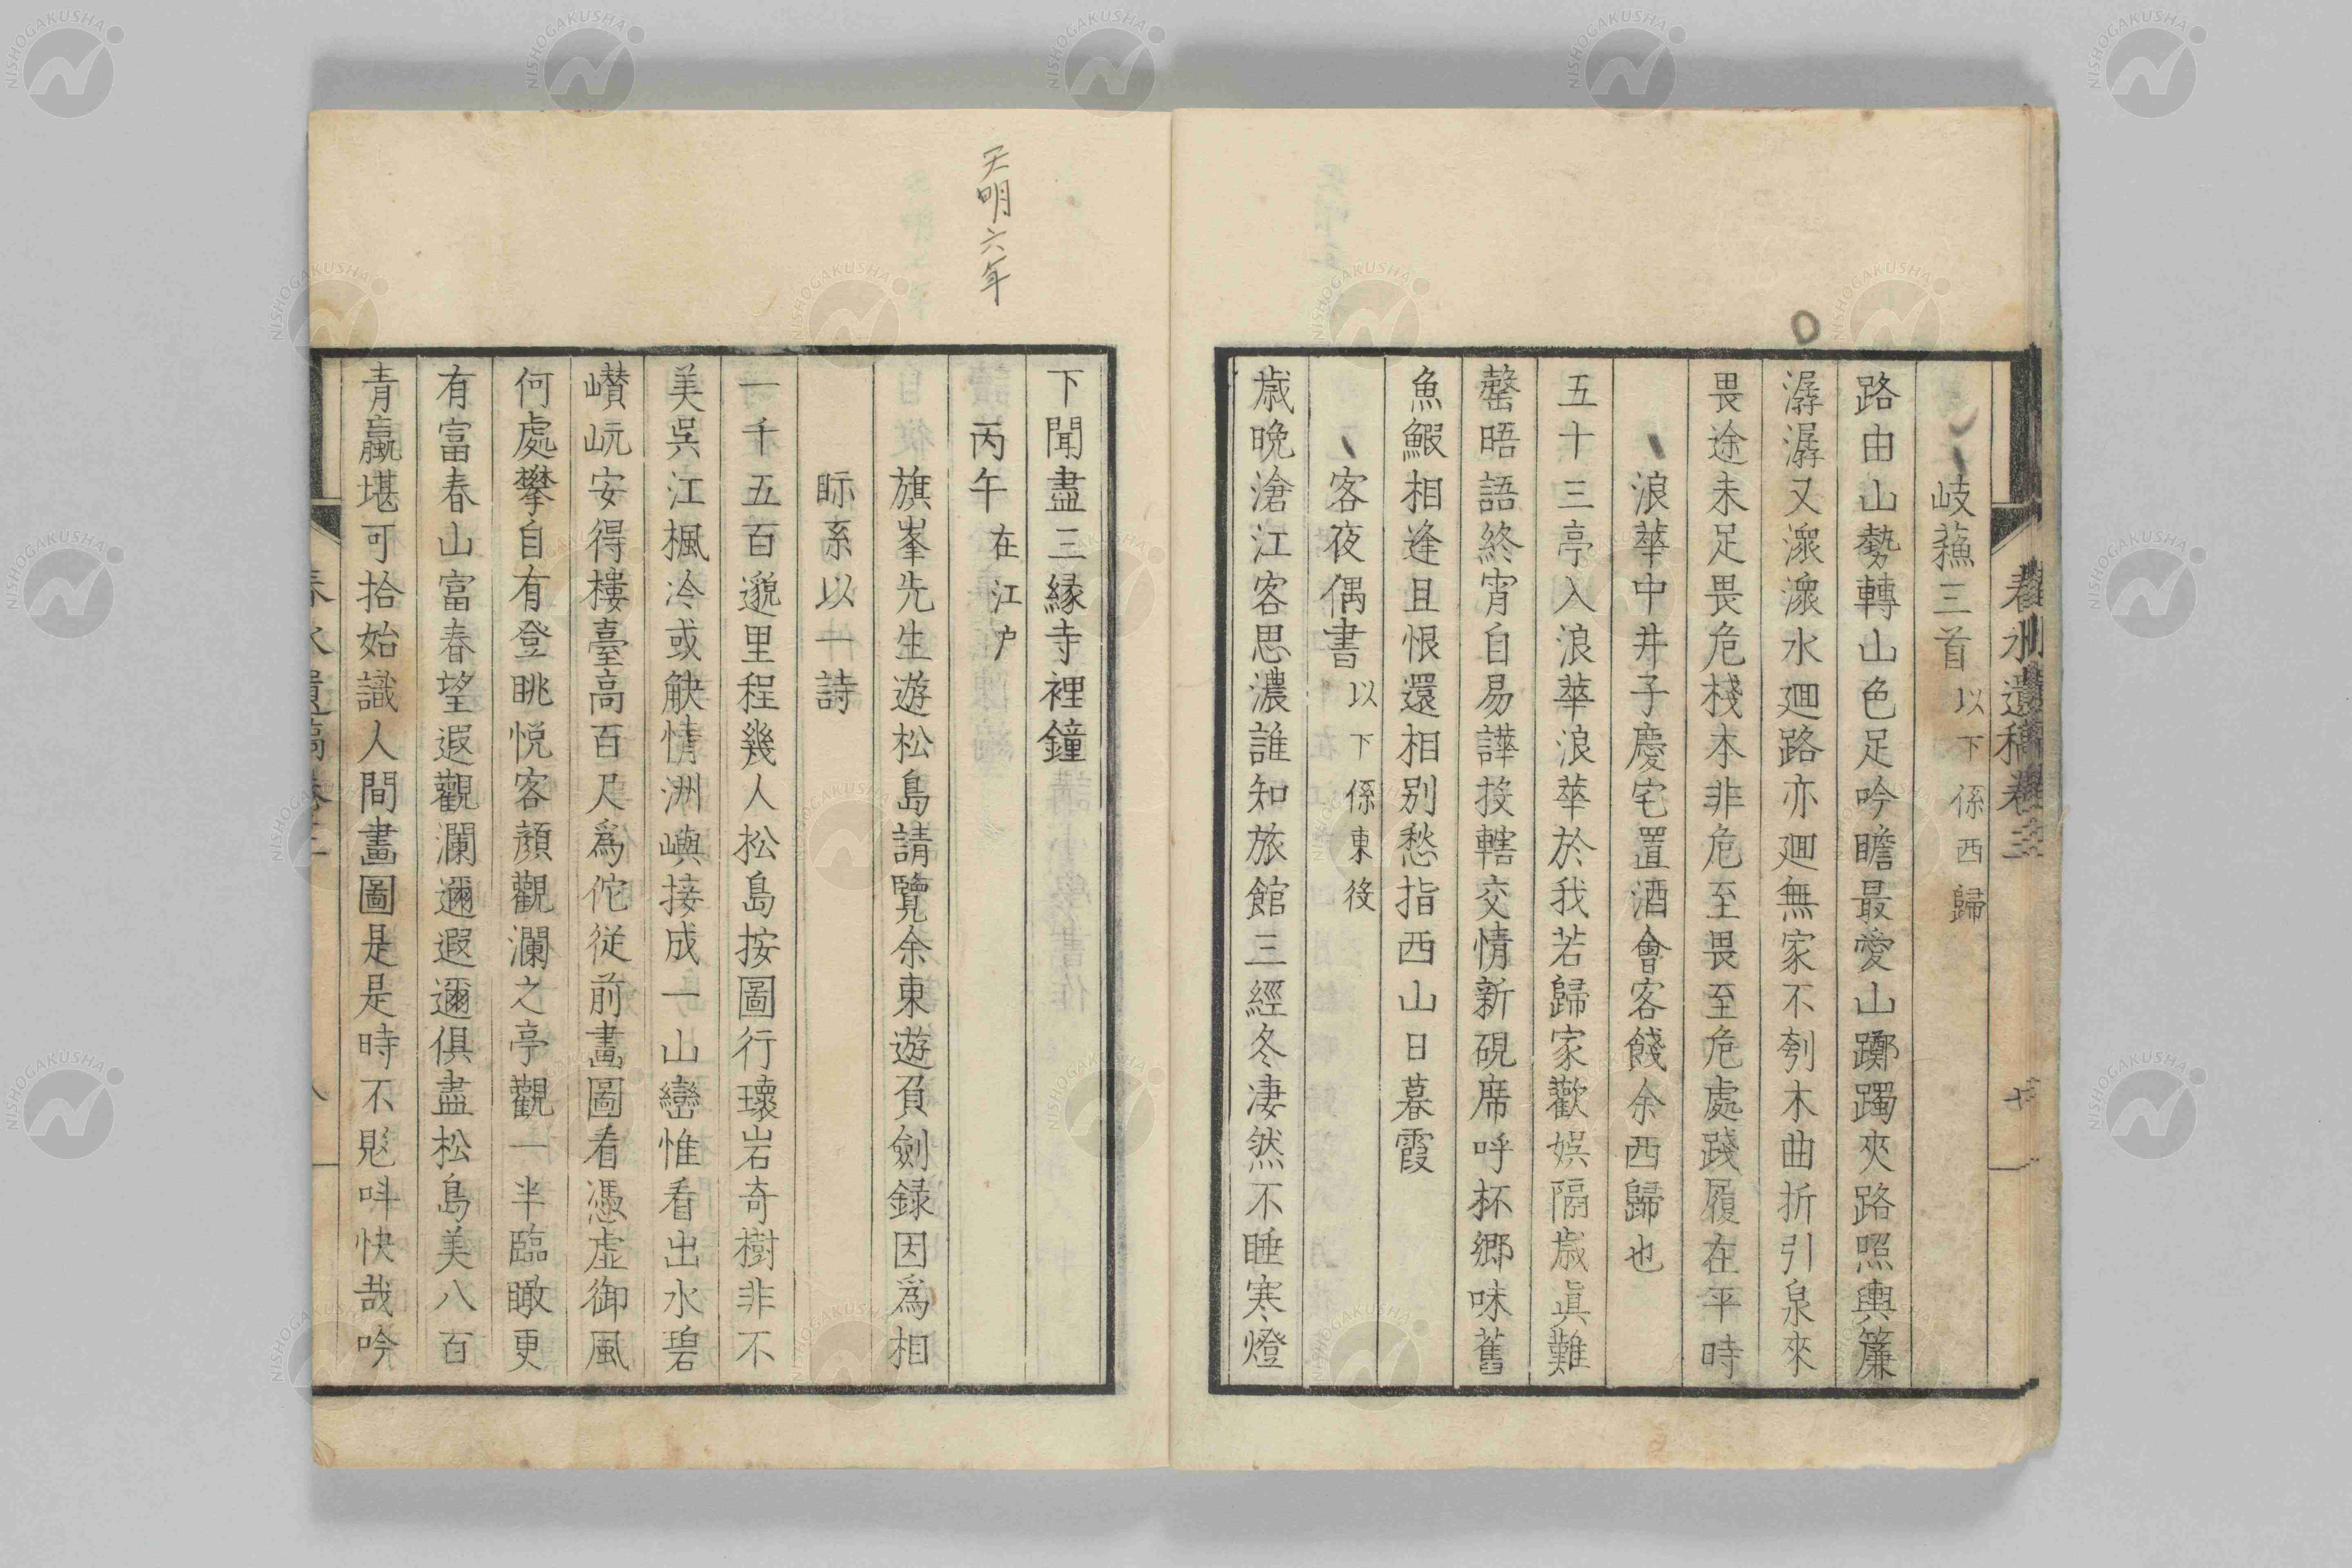 春水遺稿卷三
七
岐蘓三首 以下係西歸
路由山勢轉山色足吟瞻最愛山躑躅夾路照輿簾
潺潺又瀤瀤水廻路亦廻無家不刳木曲折引泉來
畏途未足畏危棧本非危至畏至危處踐履在平時
浪華中井子慶宅置酒會客餞余西歸也
五十三亭入浪華浪華於我若歸家歡娯隔歳眞難
罄晤語終宵自易譁投轄交情新硯席呼杯郷味舊
魚鰕相逢且恨還相別愁指西山日暮霞
客夜偶書 以下係東役
歳晩滄江客思濃誰知旅館三經冬凄然不睡寒燈
天明六年
下聞盡三縁寺裡鐘
丙午 在江戸
旗峯先生遊松島請覽余東遊負劍録因爲相
眎系以一詩
一千五百邈里程幾人松島按圖行瓌岩奇樹非不
美呉江楓冷或觖情洲嶼接成一山巒惟看出水碧
巑岏安得樓臺高百尺爲佗従前畫圖看憑虚御風
何處攀自有登眺悦客顔觀瀾之亭觀一半臨瞰更
有富春山富春望遐觀瀾邇遐邇倶盡松島美八百
青蠃堪可拾始識人間畫圖是是時不覐呌快哉吟
NISHOGAKUSHA